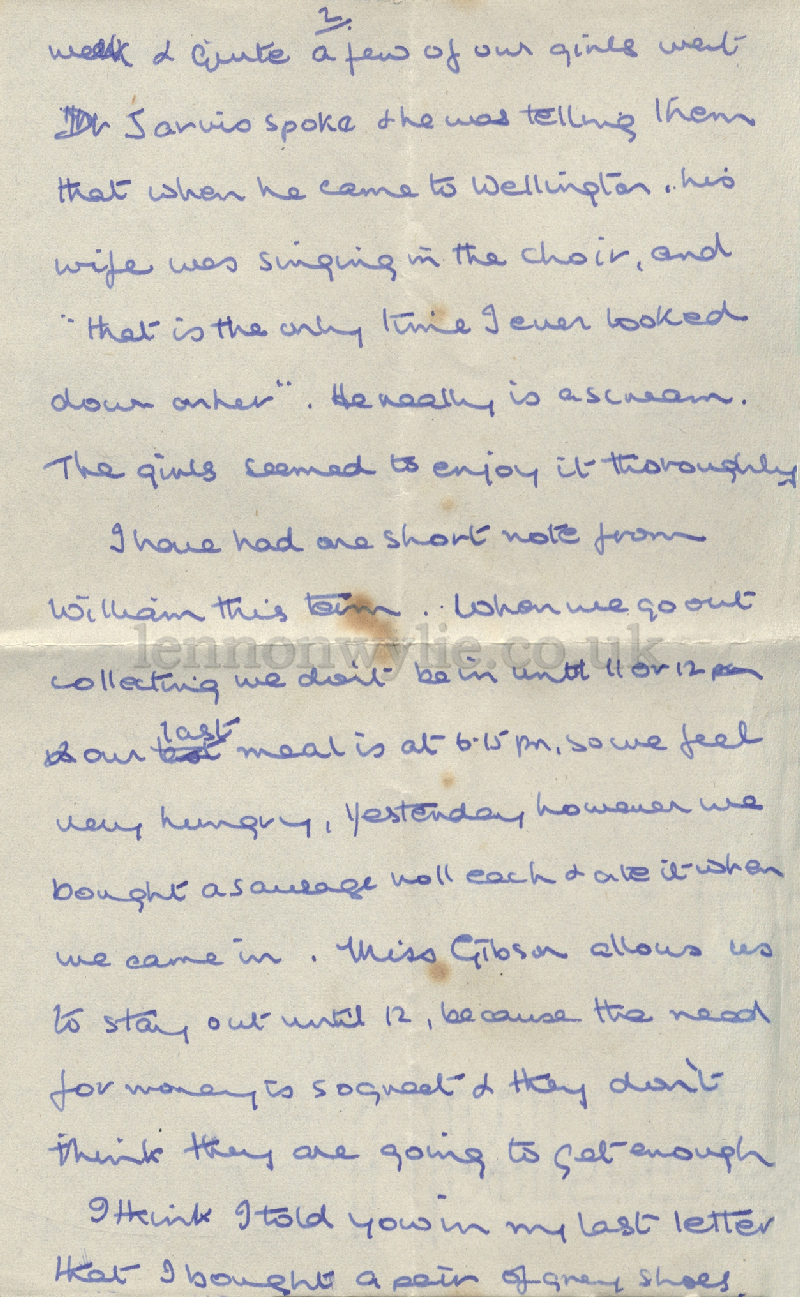 2.
week & quite a few of our girls went
Dr Jarvis spoke & he was telling them
that when he came to Wellington, his
wife was singing in the choir, and
"that is the only time I ever looked
down on her". He really is a scream.
The girls seemed to enjoy it thoroughly
I have had one short note from
William this term. When we go out
lennonwylie.co.uk
collecting we don't be in until 11 or 12 pm
& our last meal is at 6.15 pm, so we feel
very hungry, yesterday however we
bought a sausage roll each & ate it when
we came in. Miss Gibson allows us
to stay out until 12, because the need
for money is so great & they don't
think they are going to get enough
I think I told you in my last letter
that I bought a pair of grey shoes.